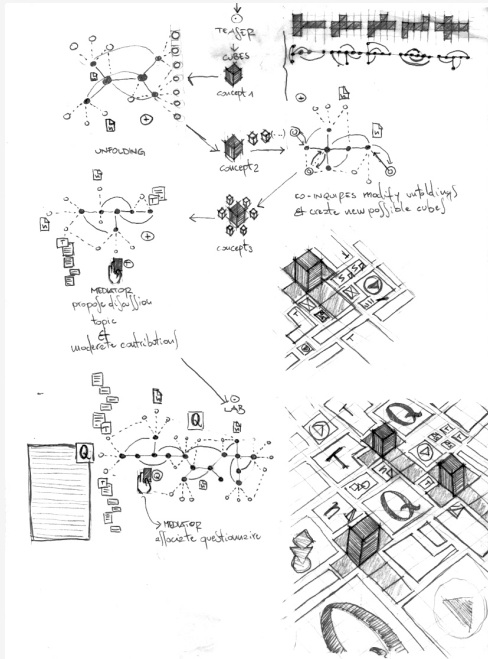 TEASER
CUBES
concept 1
UNFOLDING
(...)
concept 2
CO-INQUIRES modify unfoldings
& create new possible cubes
concept 3
T
MEDIATOR
propose discussion
topic
&
moderate contributions
LAB
Q
Q
T
Q
MEDIATOR
associate questionnaire
T
Q
T
Q